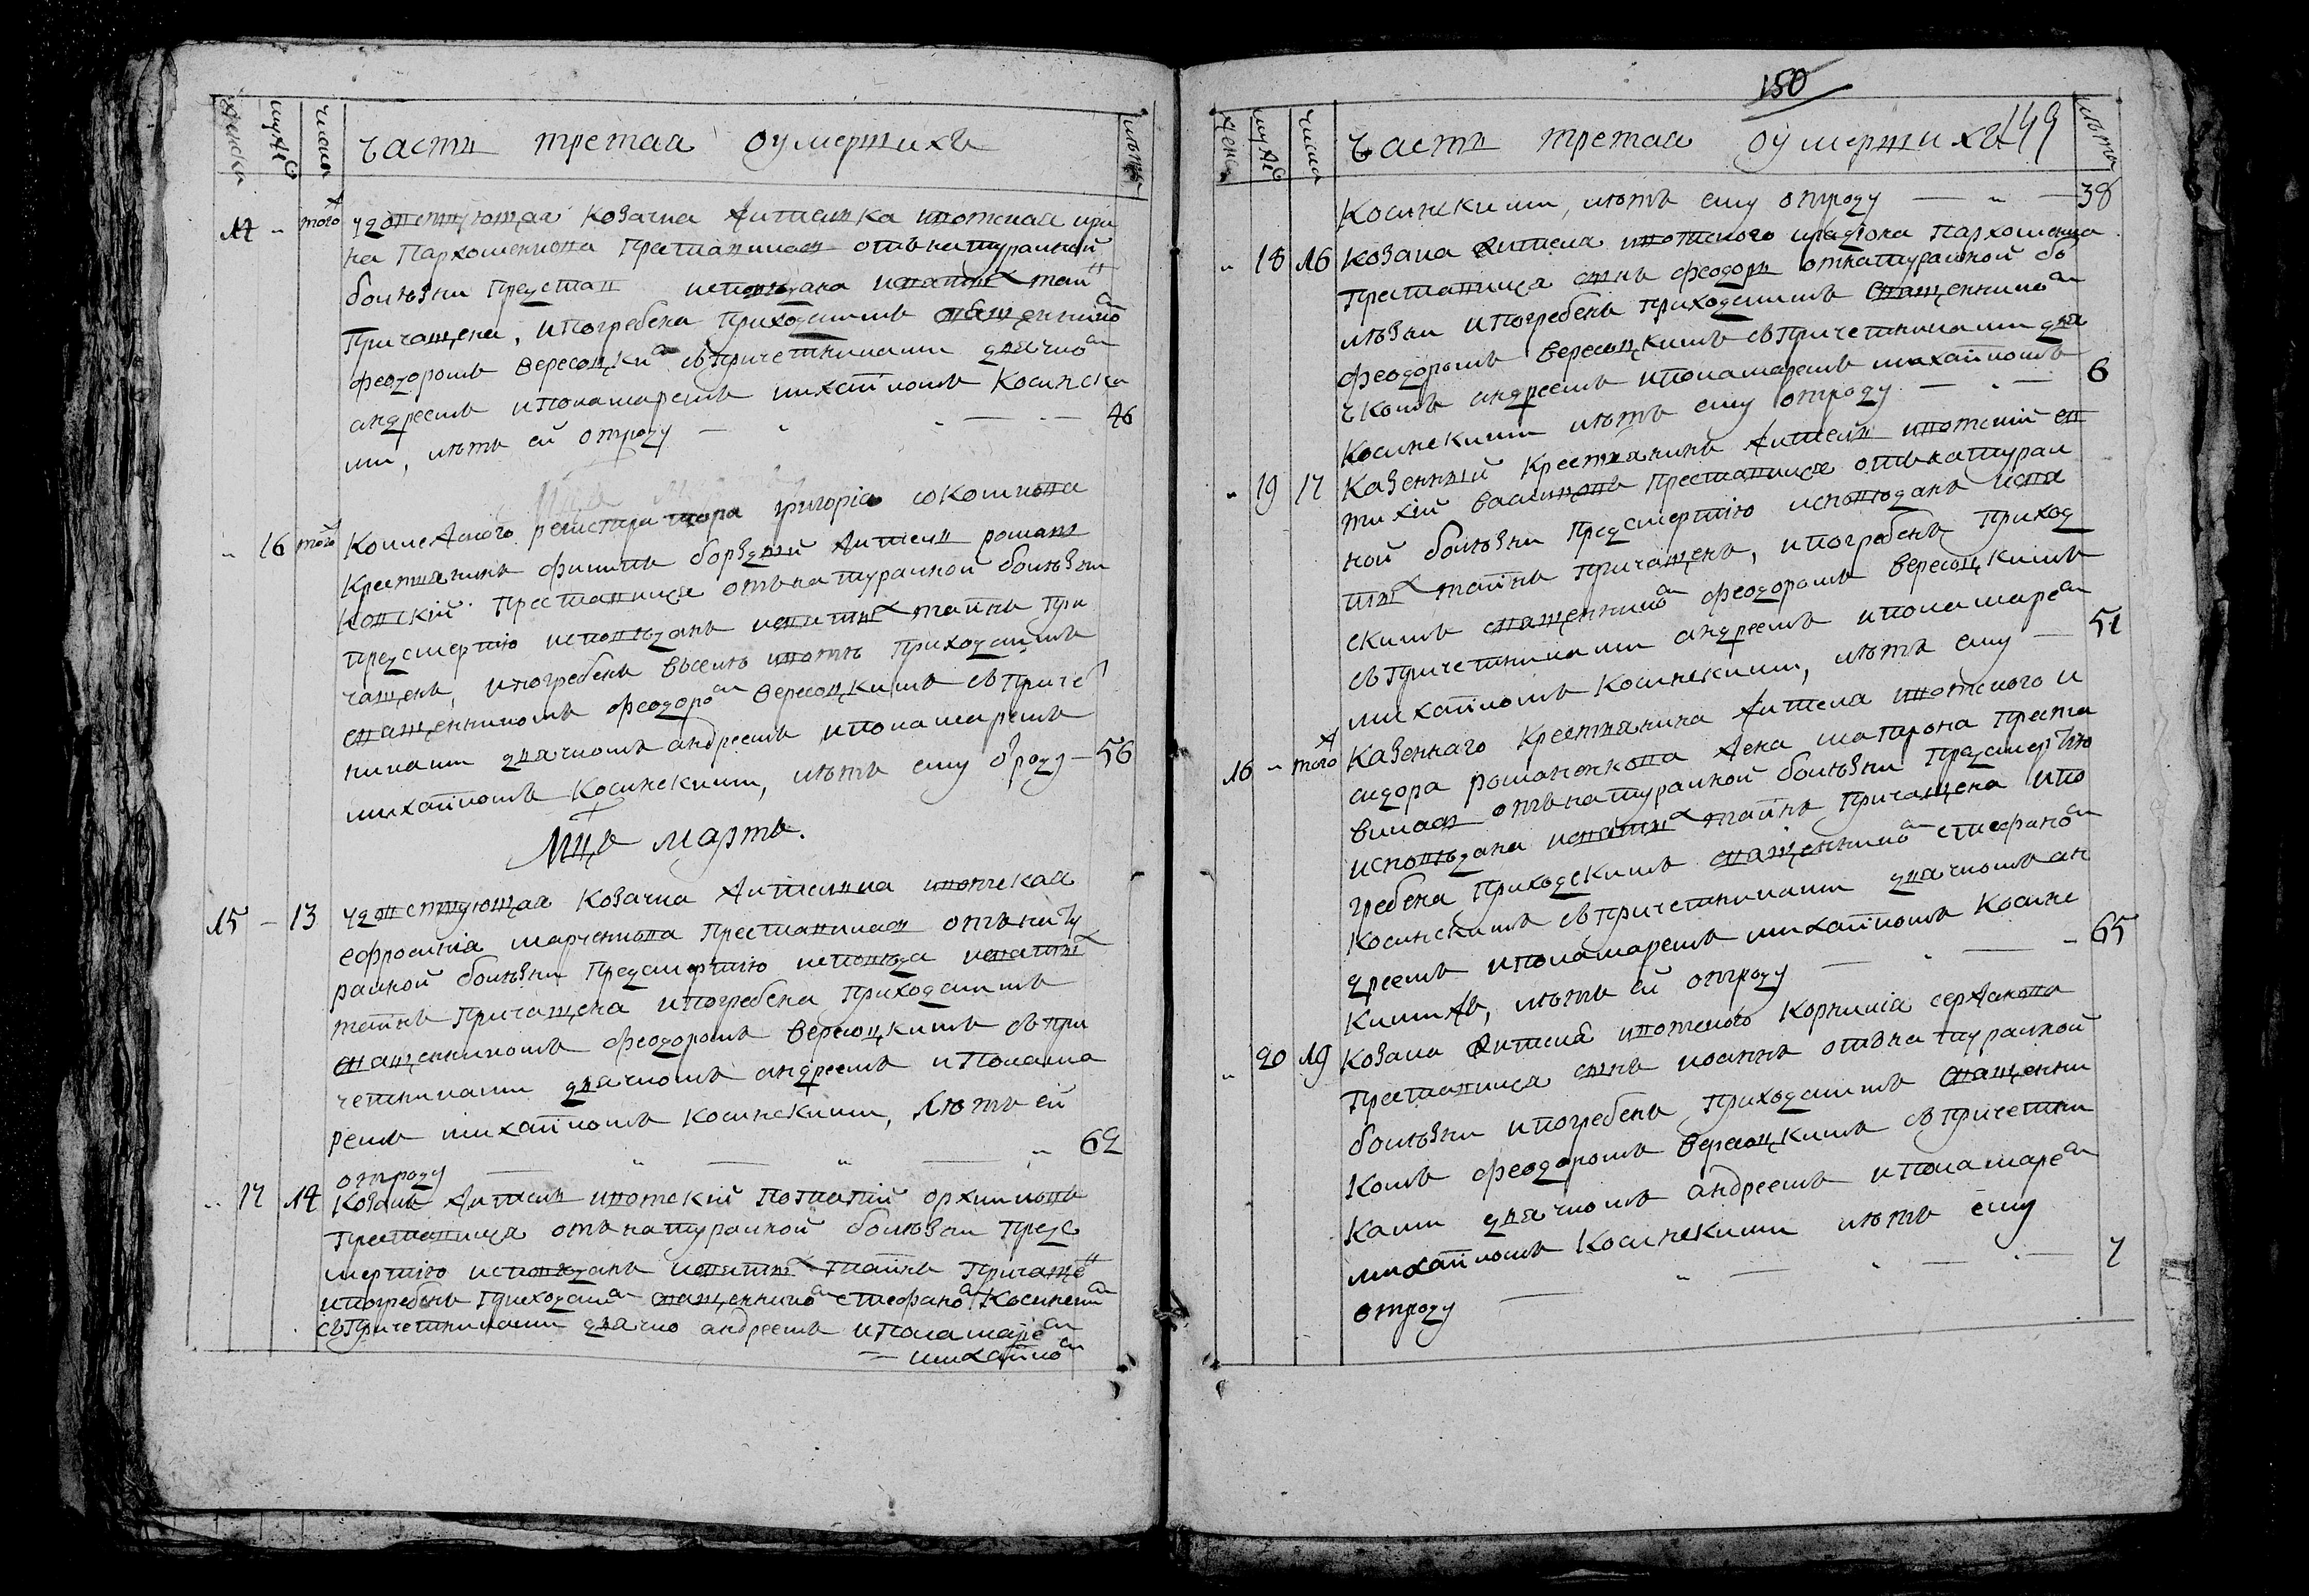 женска мужеС числа Часть третая Оумершихъ лѣта
14 " того ж удовствующая козачка жителька ивотская ири
на Пархоменкова Преставилась отъ натуралной
болѣзни Предсмап исповѣдана и святыхъ таин
Причащена, и погребена Приходскимъ священнико
Феодоромъ вересоцки съ причетниками дьячко
андреемъ и Пономаремъ михайломъ Косински
ми, лѣтъ ей отроду — " " — 46
" 16 того Коллежского регистратора григорія соколиова
Крестьянинъ филипъ борздый житель роман
ковскій Преставился отъ натуралной болѣзни
предсмертію исповѣданъ и святыхъ таинъ При
чащенъ, и погребенъ в селѣ ивотѣ Приходскимъ
священникомъ феодоро вересоцкимъ съ Приче
никами дьячкомъ андреемъ и пономаремъ
михайломъ Косинскими, лѣтъ ему отроду — 56
Мцъ мартъ.
15 — 13 удовствующая Козачка жителька ивотская
ефросинія марченкова Преставилась отъ нату
ралной болѣзни Предсмертію исповѣда и святыхъ
таинъ Причащена и погребена Приходскимъ
священникомъ феодоромъ вересоцкимъ съ при
четниками дьячкомъ андреемъ и Понома
ремъ михайломъ Косинскими, Лѣтъ ей
отроду — " — " — " 62
" 17 14 Козакъ житель ивотскій Потапій архиповъ
Преставился отъ натуралной болѣзни Предс
мертію исповѣданъ и святыхъ таинъ Причаще
и погребенъ Приходски священнико стефано Косинским
съ Причетниками дьячко андреемъ и Пономаре
— михайло
150
жена мужеС числа Часть третая Оумершихъ 149 лѣта
Косинскими, лѣтъ ему отроду — " — 38
" 18 16 Козака жителя ивотского иродіона Пархоменка
Преставился сынъ феодоръ отнатуралной бо
лѣзни и погребенъ Приходскимъ священнико
феодоромъ вересоцкимъ съ причетниками дья
чкомъ андреемъ и пономаремъ михайломъ
Косинскими лѣтъ ему отроду — " — 6
" 19 17 Казенный Крестьянинъ житель ивотскій ев
тихій василцовъ Преставился отъ натурал
ной болѣзни Предсмертію исповѣданъ и свя
тыхъ таинъ Причащенъ, и погребенъ Приход
скимъ священнико феодоромъ вересоцкимъ
съ Причетниками андреемъ и пономаре
михайломъ Косинскими, лѣтъ ему — 51
16 " того ж Казеннаго Крестьянина жителя ивотского и
сидора романенкова жена матрона Преста
вилась отъ натуралной болѣзни Предсмертію
исповѣдана и святыхъ таинъ Причащена и по
гребена Приходскимъ священнико стефано
Косинскимъ съ причетниками дьячкомъ ан
дреемъ и пономаремъ михайломъ Косинс
кими жъ, лѣтъ ей отроду — " — " 65
" 20 19 Козака жителя ивотского Корнилія сержанова
Преставился сынъ иоаннъ отъ натуралной
болѣзни и погребенъ Приходскимъ священни
комъ феодоромъ вересоцкимъ съ Причетни
ками дьячкомъ андреемъ и Пономаре
михайломъ Косинскими лѣтъ ему
отроду — " — " — " — 7